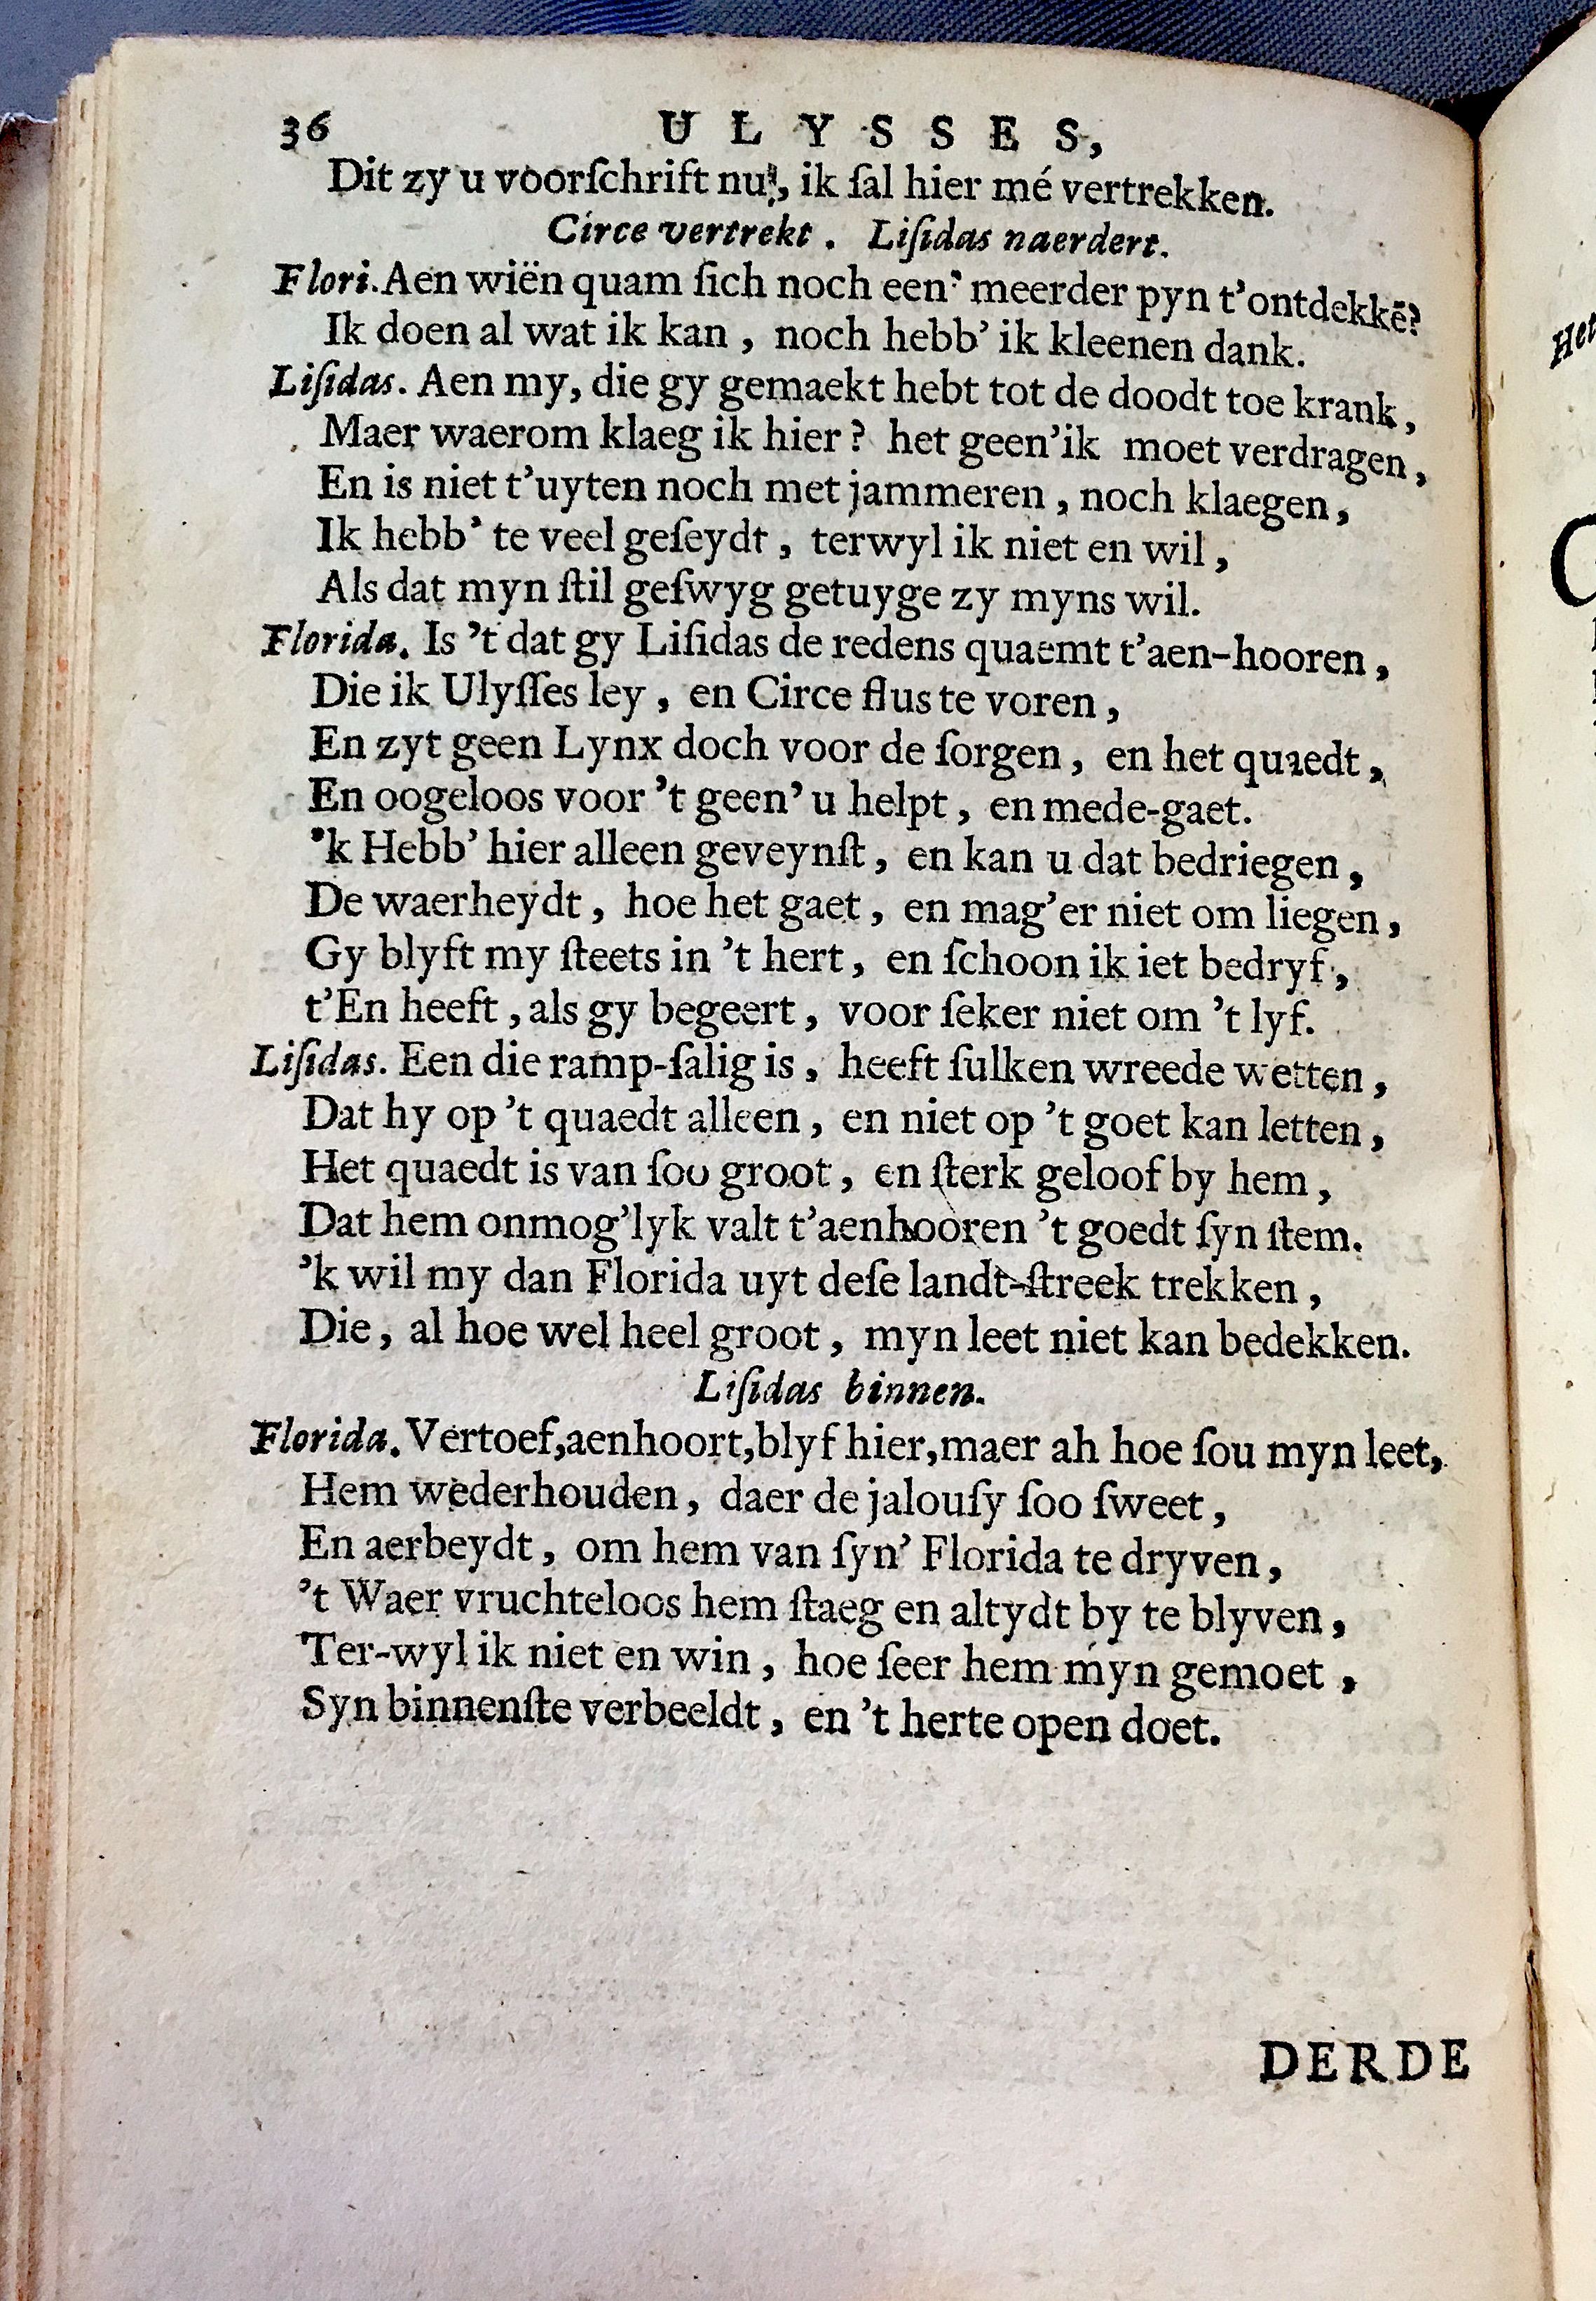 36 ULYSSES,
Dit zy u voorſchrift nu, ik ſal hier mé vertrekken.
Circe vertrekt. Liſidas naerdert.
Flori. Aen wiën quam ſich noch een' meerder pyn t'ontdekkē?
Ik doen al wat ik kan, noch hebb' ik kleenen dank.
Liſidas. Aen my, die gy gemaekt hebt tot de doodt toe krank,
Maer waerom klaeg ik hier? het geen'ik moet verdragen,
En is niet t'uyten noch met jammeren, noch klaegen,
Ik hebb' te veel geſeydt, terwyl ik niet en wil,
Als dat myn ſtil geſwyg getuyge zy myns wil.
Florida. Is 't dat gy Liſidas de redens quaemt t'aen-hooren,
Die ik Ulyſſes ley, en Circe flus te voren,
En zyt geen Lynx doch voor de ſorgen, en het quaedt,
En oogeloos voor 't geen' u helpt, en mede-gaet.
'k Hebb' hier alleen geveynſt, en kan u dat bedriegen,
De waerheydt, hoe het gaet, en mag'er niet om liegen,
Gy blyft my ſteets in 't hert, en ſchoon ik iet bedryf,
t'En heeft, als gy begeert, voor ſeker niet om 't lyf.
Liſidas. Een die ramp-ſalig is, heeft ſulken wreede wetten,
Dat hy op 't quaedt alleen, en niet op 't goet kan letten,
Het quaedt is van ſou groot, en ſterk geloof by hem,
Dat hem onmog'lyk valt t'aenhooren 't goedt ſyn ſtem.
'k wil my dan Florida uyt deſe landt-ſtreek trekken,
Die, al hoe wel heel groot, myn leet niet kan bedekken.
Liſidas binnen.
Florida. Vertoef,aenhoort,blyf hier,maer ah hoe ſou myn leet,
Hem wederhouden, daer de jalouſy ſoo ſweet,
En aerbeydt, om hem van ſyn' Florida te dryven,
't Waer vruchteloos hem ſtaeg en altydt by te blyven,
Ter-wyl ik niet en win, hoe ſeer hem myn gemoet,
Syn binnenſte verbeeldt, en 't herte open doet.
DERDE